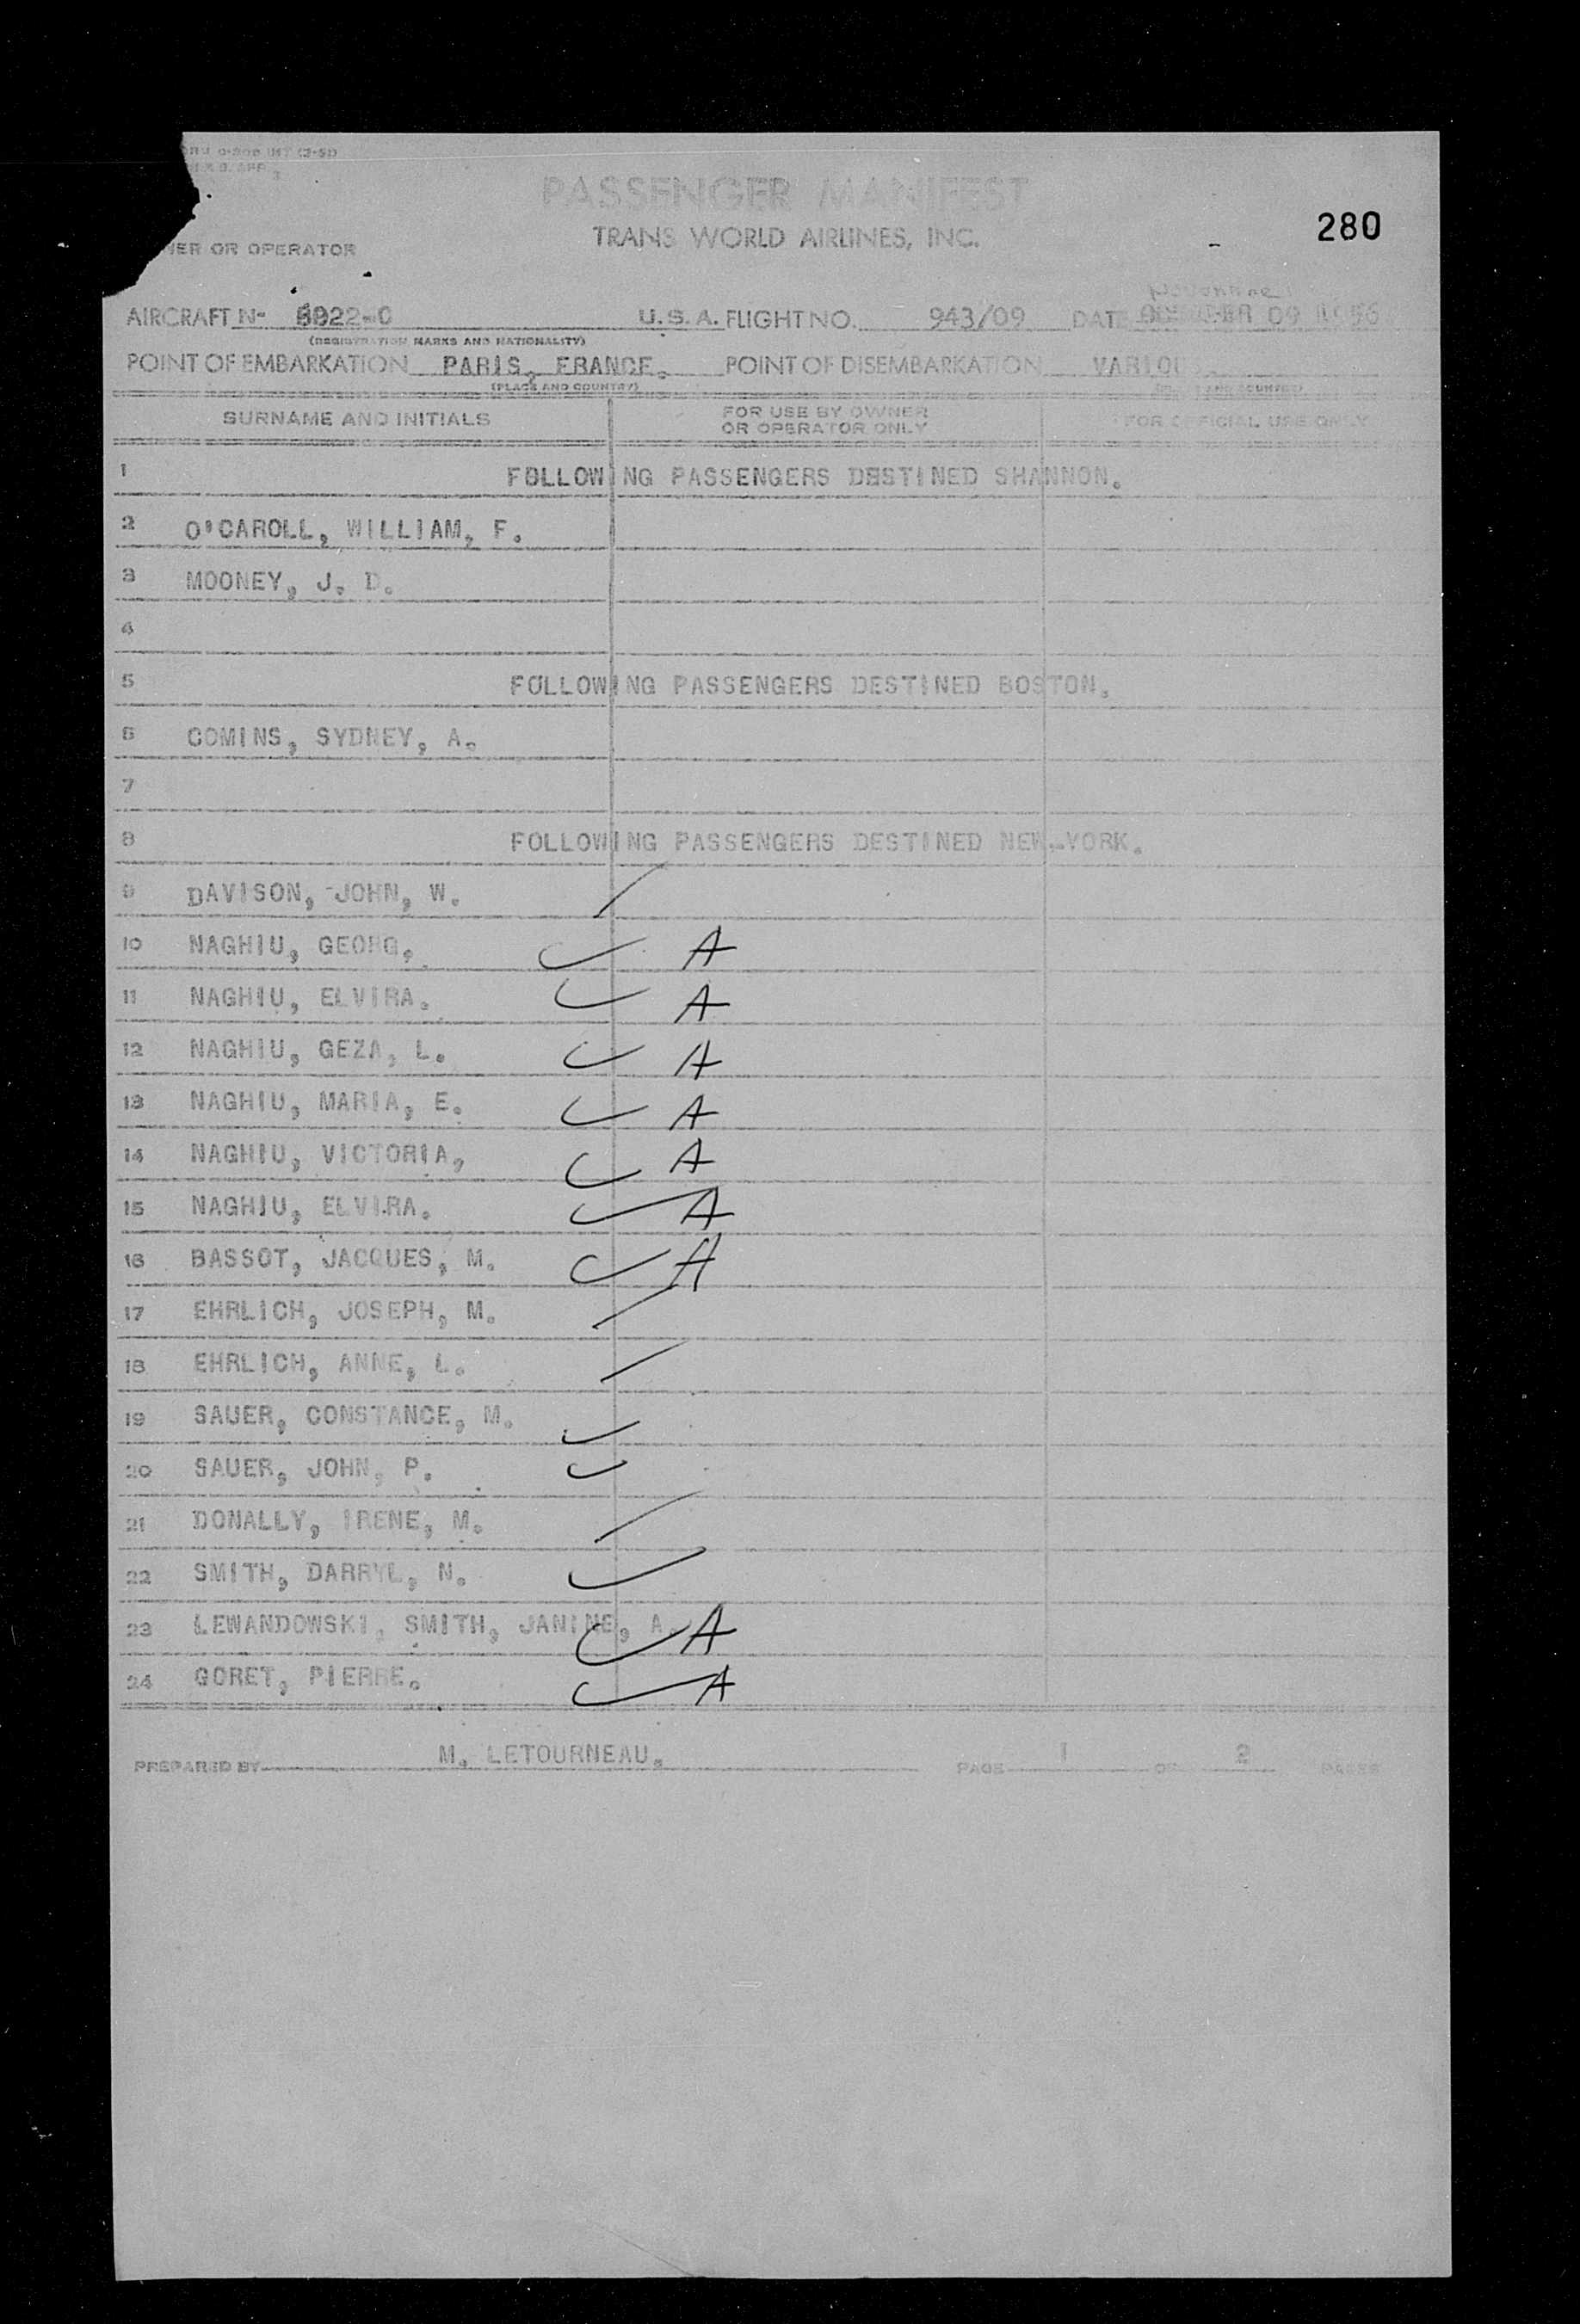 PASSENGER MANIFEST
TRANS WORLD AIRLINES, INC.
280
OR OPERATOR
AIRCRAFT No 6922-C U.S.A. FLIGHT NO. 943/09 DATE 09 1956
(REGISTRATION MARKS AND NATIONALITY)
POINT OF EMBARKATION PARIS, FRANCE. POINT OF DISEMBARKATION VARIOUS.
(PLACE AND COUNTRY) (PLACE AND COUNTRY)
SURNAME AND INITIALS FOR USE BY OWNER OR OPERATOR ONLY FOR OFFICIAL USE ONLY
1 FOLLOWING PASSENGERS DESTINED SHANNON.
2 O'CAROLL, WILLIAM, F.
3 MOONEY, J. D.
4
5 FOLLOWING PASSENGERS DESTINED BOSTON.
6 COMINS, SYDNEY, A.
7
8 FOLLOWING PASSENGERS DESTINED NEW-YORK.
9 DAVISON, JOHN, W.
10 NAGHIU, GEORG. ✓ A
11 NAGHIU, ELVIRA. ✓ A
12 NAGHIU, GEZA, L. ✓ A
13 NAGHIU, MARIA, E. ✓ A
14 NAGHIU, VICTORIA, ✓ A
15 NAGHIU, ELVIRA. ✓ A
16 BASSOT, JACQUES, M. ✓ A
17 EHRLICH, JOSEPH, M.
18 EHRLICH, ANNE, L.
19 SAUER, CONSTANCE, M. ✓
20 SAUER, JOHN, P. ✓
21 DONALLY, IRENE, M.
22 SMITH, DARRYL, N. ✓
23 LEWANDOWSKI, SMITH, JANINE, A. ✓ A
24 GORET, PIERRE. ✓ A
PREPARED BY M. LETOURNEAU. PAGE 1 OF 2 PAGES